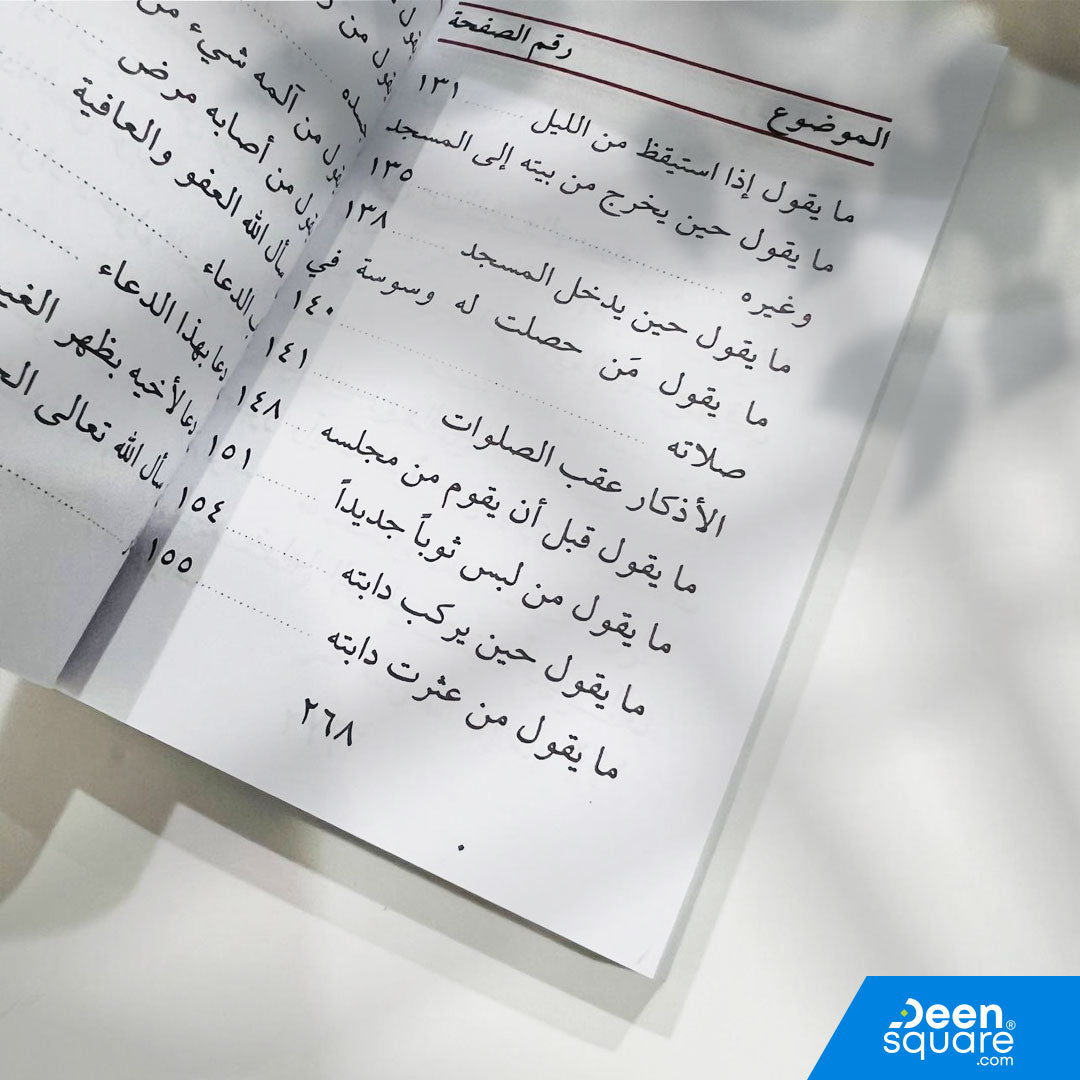 الموضوع رقم الصفحة
ما يقول إذا استيقظ من الليل ........ ١٣١
ما يقول حين يخرج من بيته إلى المسجد
وغيره ........ ١٣٥
ما يقول حين يدخل المسجد ........ ١٣٨
ما يقول مَن حصلت له وسوسة في
صلاته ........ ١٤٠
الأذكار عقب الصلوات ........ ١٤١
ما يقول قبل أن يقوم من مجلسه ........ ١٤٨
ما يقول من لبس ثوباً جديداً ........ ١٥١
ما يقول حين يركب دابته ........ ١٥٤
ما يقول من عثرت دابته ........ ١٥٥
٢٦٨
من آلمه شيء
من أصابه مرض
الله العفو والعافية
الدعاء
بهذا الدعاء
لأخيه بظهر
الله تعالى
Deen
square®
.com